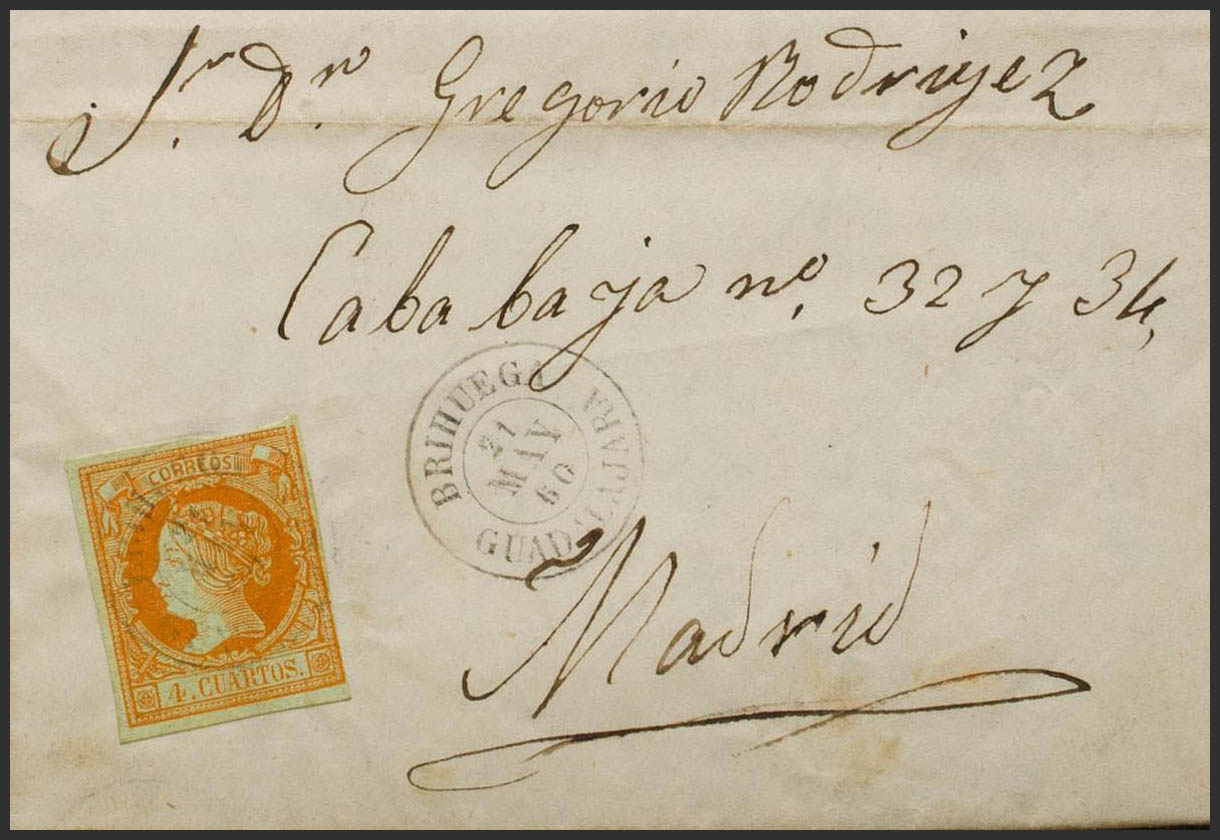 Sr. Dn. Gregorio Rodriyez
Caba baja nº. 32 y 34,
BRIHUEGA
21
MAY
60
GUADALAJARA
CORREOS
4. CUARTOS.
Madrid